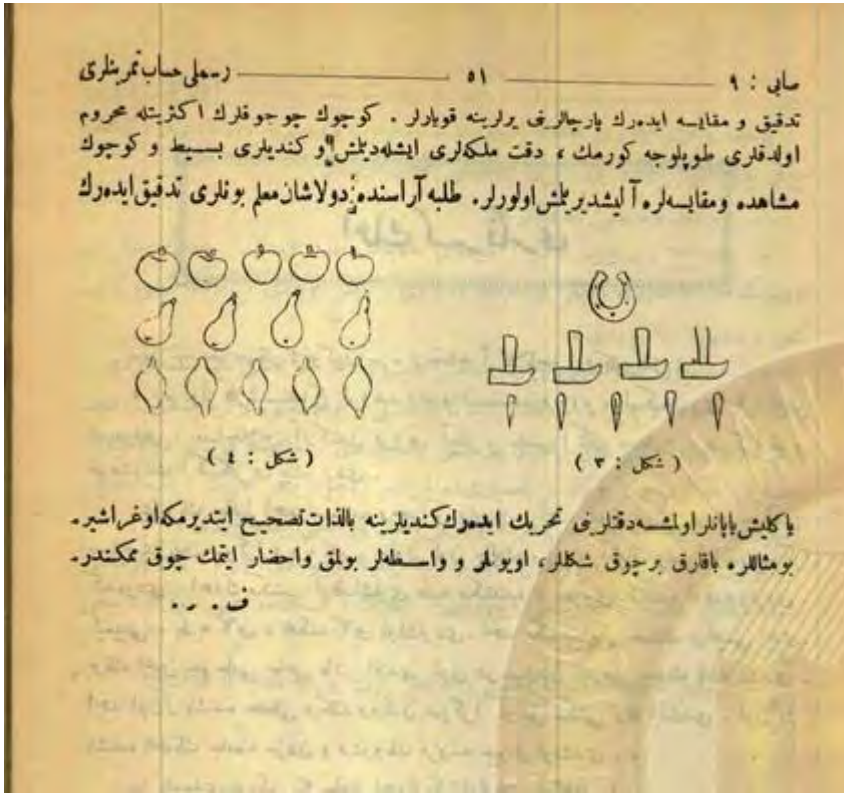 صایی : ٩ ٥١ رسملی حساب تمرینلری
تدقیق و مقایسه ایده‌رك پارچالرینی یرلرینه قویارلر . کوچوك چوجوقلرك اکثریتله محروم
اولدقلری طوپلوجه کورمك ، دقت ملکه‌لری ایشله‌دیلمش و کندیلری بسیط و کوچوك
مشاهده ومقایسه‌لره آلیشدیریلمش اولورلر. طلبه آراسنده دولاشان معلم بونلری تدقیق ایده‌رك
( شکل : ٣ )
( شکل : ٤ )
یاکلیش یاپانلر اولمشسه دقتلرینی تحریك ایده‌رك کندیلرینه بالذات تصحیح ایتدیرمکه اوغراشیر.
بومثاللره باقارق برچوق شکللر، اویونلر و واسطه‌لر بولمق واحضار ایتمك چوق ممکندر.
ف . ر .